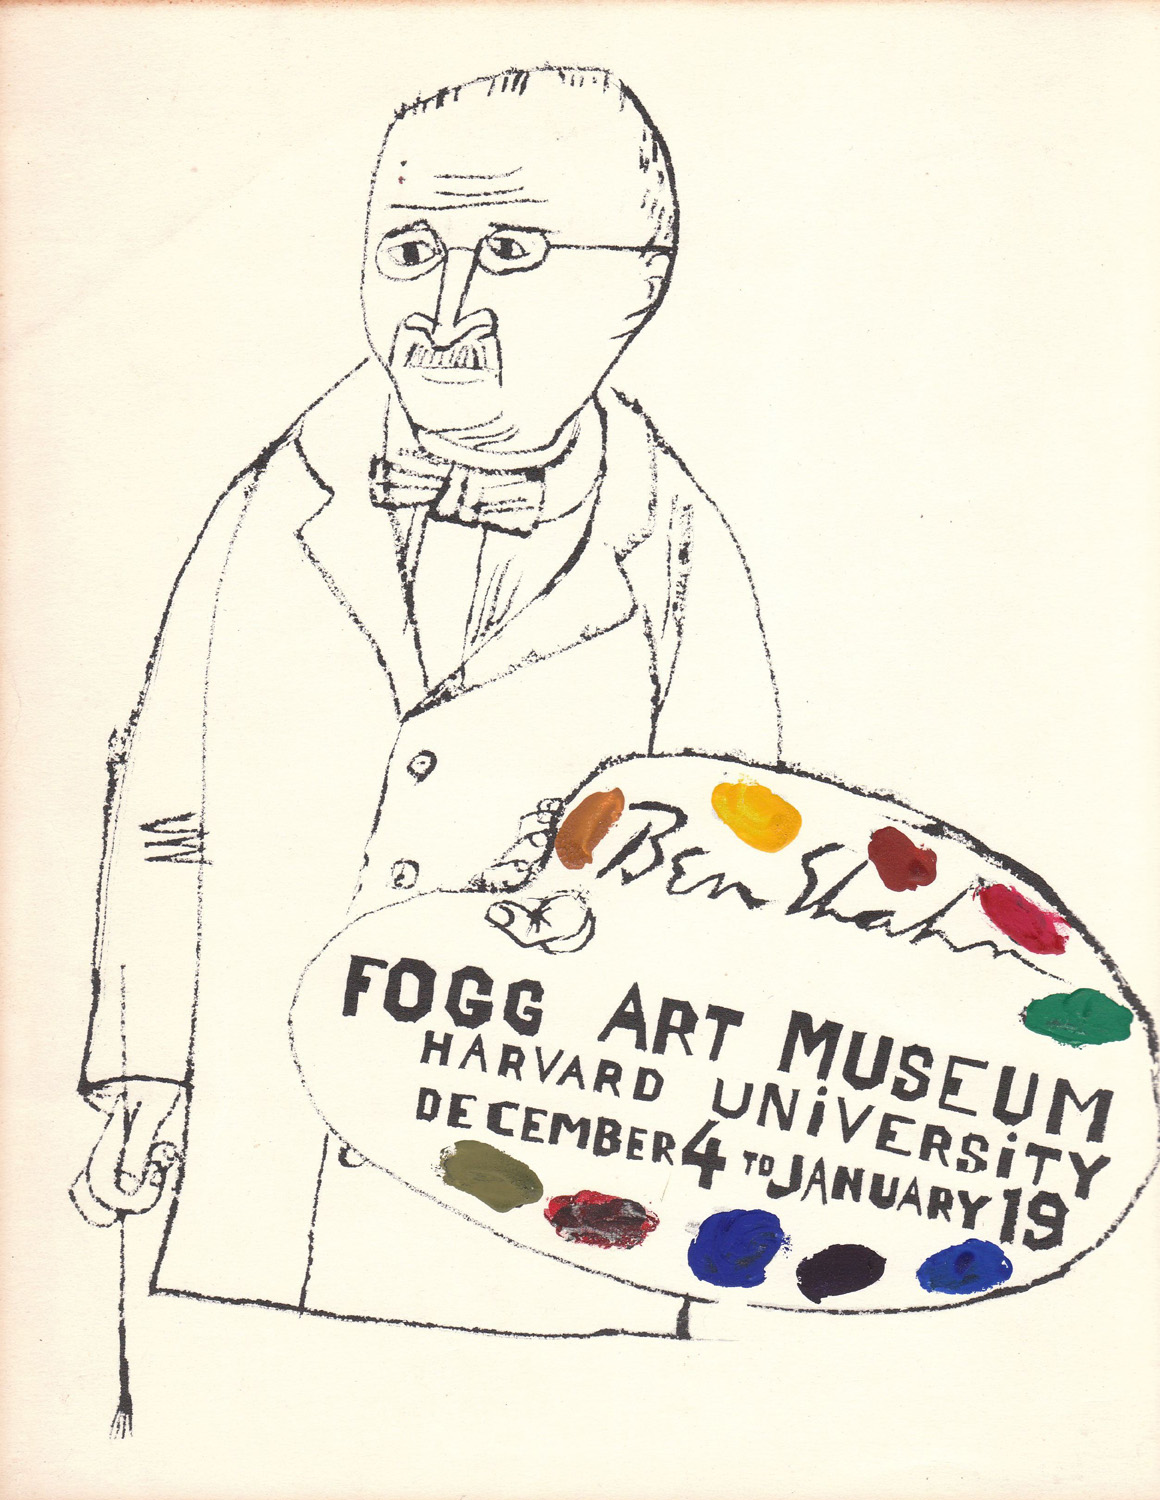 Ben Shahn
FOGG ART MUSEUM
HARVARD UNiVERSiTY
DECEMBER 4 TO JANUARY 19